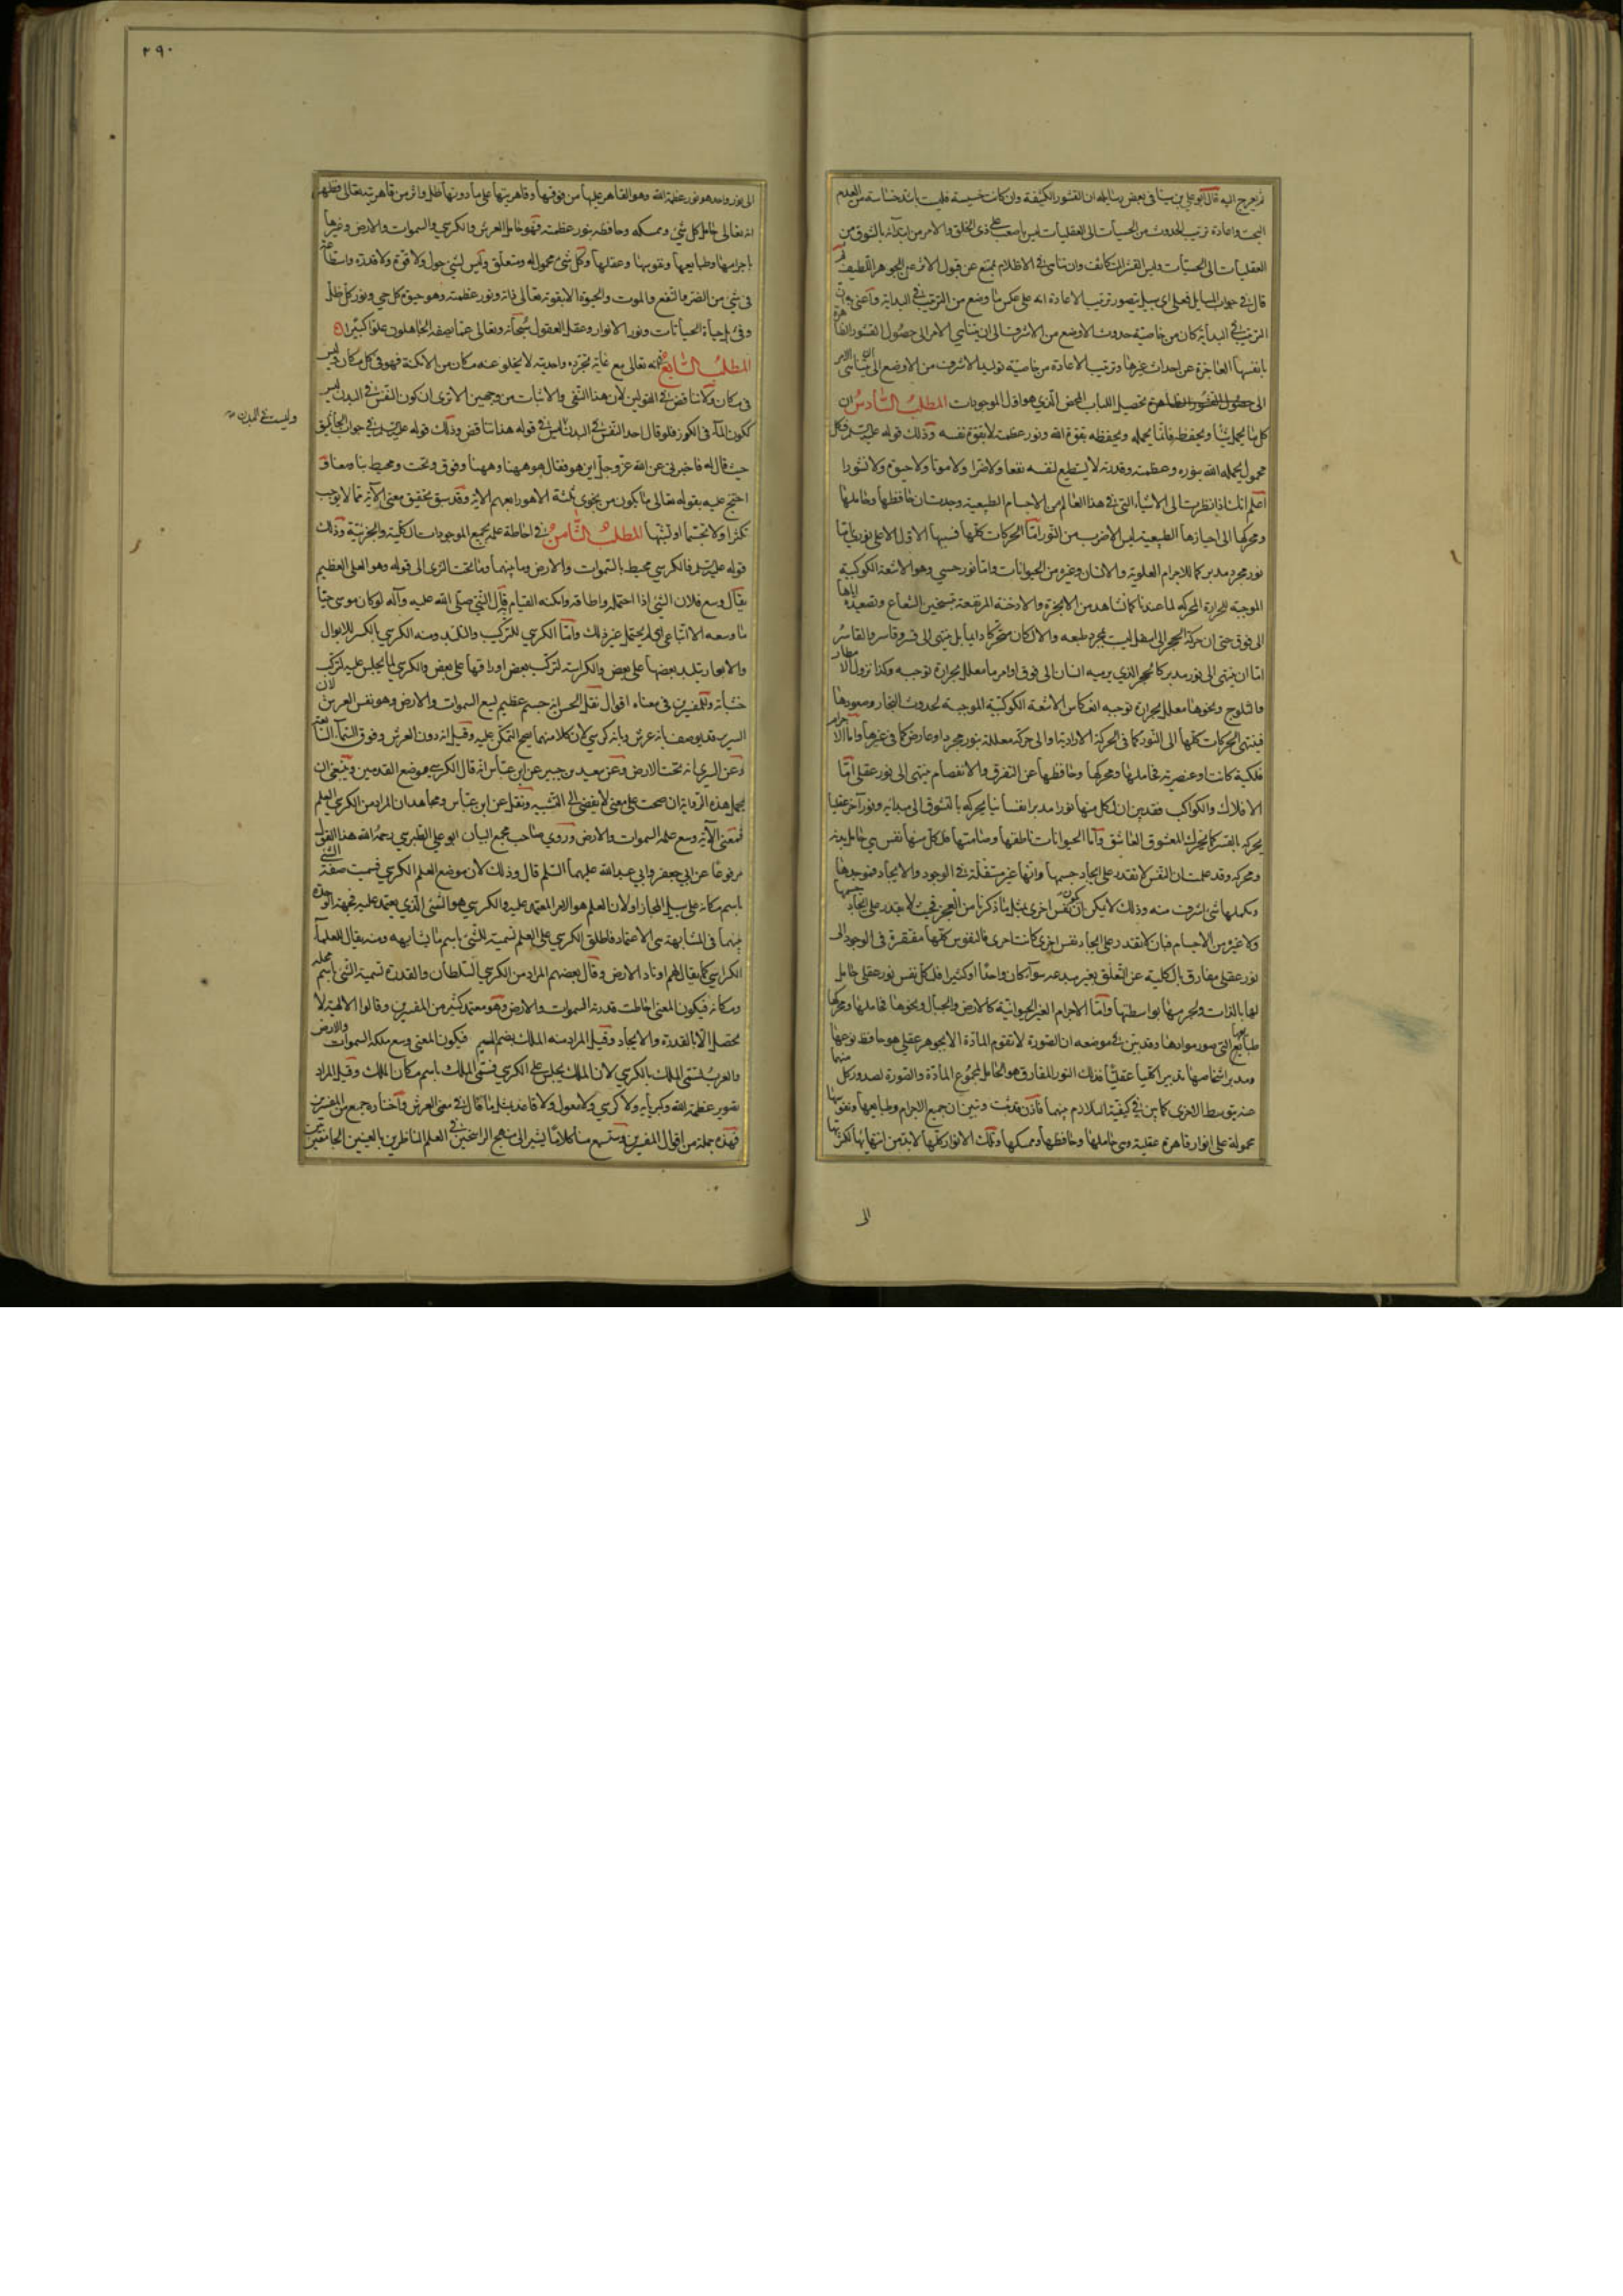 ثم يعرج اليه قال ابو علي بن سينا في بعض رسايله ان القشور الكثيفة وان كانت خسيسة فليست باشد خساسة من العدم
البحت واعادة ترتيب الحدوث من الحسيات الى العقليات ليس باصعب على ذي الخلق والامر من ابتدائه بالشوق من
العقليات الى الحسيات وليس القشر المتكاثف وان تناهى في الاظلام بممتنع عن قبول الاثر عن الجوهر اللطيف ثم
قال في جواب السايل فعلى اي سبيل يتصور ترتيب الاعادة انه على عكس ما وضع من الترتيب في البداية واعني به ان
الترتيب في البداية كان من خاصيته حدوث الاوضع من الاشرف الى ان يتناهى الامر الى حصول القشور الظاهرة
بانفسها العاجزة عن احداث غيرها وترتيب الاعادة من خاصيته توليد الاشرف من الاوضع الى ان يتناهى الامر
الى تحصيل اللباب المحض الذي هو اول الموجودات المطلب السادس ان
كل ما يحمل شيئا ويحفظه فانما يحمله ويحفظه بقوة الله ونور عظمته لا بقوة نفسه وذلك قوله عليه السلم فكل
محمول يحمله الله بنوره وعظمته وقدرته لا يستطيع لنفسه نفعا ولا ضرا ولا موتا ولا حيوة ولا نشورا
اعلم انك اذا نظرت الى الاشياء التي في هذا العالم من الاجسام الطبيعية وجدت ان حافظها وحاملها
ومحركها الى احيازها الطبيعية ليس الا ضرب من النور اما الحركات كلها فسببها الاول الاعلى نوري اما
نور مجرد مدبر كما للاجرام العلوية والانسان وغيره من الحيوانات واما نور حسي وهو الاشعة الكوكبية
الموجبة للحرارة المحركة لما عندنا كما نشاهد من الابخرة والادخنة المرتفعة بتسخين الشعاع وتصعيده اياها
الى فوق حتى ان حركة الحجر الى اسفل ليست بمجرد طبعه والا لكان متحركا دايما بل ينتهي الى قسر وقاسر والقاسر
اما ان ينتهي الى نور مدبر كالحجر الذي يرميه انسان الى فوق او امر ما معلل بحرارة توجبه وكذا نزول الامطار
والثلوج ونحوها معلل بحرارة توجبه انعكاس الاشعة الكوكبية الموجبة لحدوث البخار وصعودها
فينتهي الحركات كلها الى النور كما في الحركة الارادية والى حركة معللة بنور مجرد او عارض كما في غيرها واما الاجرام
فلكية كانت او عنصرية فحاملها ومحركها وحافظها عن التفرق والانفصام ينتهي الى نور عقلي اما
الافلاك والكواكب فقد بين ان لكل منها نورا مدبرا نفسانيا يحركه بالتشوق الى مباديه ونورا اخر عقليا
يحركه بالقسر كما يحرك المعشوق العاشق واما الحيوانات ناطقها وصامتها فلكل منها نفس هي حامل بدنه
ومحركه وقد علمت ان النفس لا تقدر على ايجاد جسمها وانها غير مستقلة في الوجود والايجاد فموجدها
ومكملها شيء اشرف منه وذلك لا يمكن ان يكون نفس اخرى بمثل ما ذكرنا من العجز فحيث لا يقدر على ايجاد جسمها
ولا غيره من الاجسام فبان لا تقدر على ايجاد نفس اخرى كانت احرى فالنفوس كلها مفتقرة في الوجود الى
نور عقلي مفارق بالكلية عن التعلق بغير مبدعه سواء كان واحدا او كثيرا فلكل نفس نور عقلي حامل
لها بالذات ولجرمها بواسطتها واما الاجرام الغير الحيوانية كالارض والجبال ونحوها فحاملها ومحركها
طبايعها التي صور موادها وقد بين في موضعه ان الصورة لا تقوم المادة الا بجوهر عقلي هو حافظ نوعها
ومدبر اشخاصها تدبيرا كليا عقليا فذلك النور المفارق هو الحامل لمجموع المادة والصورة لصدور كل منهما
عنه بتوسط الاخرى كما بين في كيفية التلازم بينهما فاذن قد ثبت وتبين ان جميع الاجرام وطبايعها ونفوسها
محمولة على انوار قاهرة عقلية وهي حاملها وحافظها وممسكها وتلك الانوار كلها لا بد من انتهائها لكثرتها
الى
٢٩٠
الى نور واحد هو نور عظمة الله وهو القاهر عليها من فوقها وقاهريتها على ما دونها ظل واثر من قاهريته تعالى فظهر
انه تعالى حامل كل شيء وممسكه وحافظه بنور عظمته فهو حامل العرش والكرسي والسموات والارض وغيرها
باجرامها وطبايعها ونفوسها وعقلها وكل شيء محمول له ومتعلق وليس لشيء حول ولا قوة ولا قدرة واستطاعة
في شيء من الضر والنفع والموت والحيوة الا بقوته تعالى ذاته ونور عظمته وهو حيوة كل حي ونور كل ظل
وفيء احياة الحياتات ونور الانوار وعقل العقول سبحانه وتعالى عما يصفه الجاهلون علوا كبيرا
المطلب السابع انه تعالى مع غاية تجرده واحديته لا يخلو عنه مكان من الامكنة فهو في كل مكان وليس
في مكان ولا تناقض في القولين لان هذا النفي والاثبات من وجهين الا ترى ان كون النفس في البدن ليس
ككون الماء في الكوز فلو قال احد النفس في البدن ليس في قوله هذا تناقض وذلك قوله عليه السلم في جواب الجاثليق
وليست في البدن
حيث قال له فاخبرني عن الله عز وجل اين هو فقال هو ههنا وههنا وفوق وتحت ومحيط بنا ومعنا و
احتج عليه بقوله تعالى ما يكون من نجوى ثلثة الا هو رابعهم الاية وقد سبق تحقيق معنى الاية مما لا يوجب
تكثرا ولا تجسما او تشبها المطلب الثامن في احاطة علمه بجميع الموجودات الكلية والجزئية وذلك
قوله عليه السلم فالكرسي محيط بالسموات والارض وما بينهما وما تحت الثرى الى قوله وهو العلي العظيم
يقال وسع فلان الشيء اذا احتمله واطاقه وامكنه القيام قال النبي صلى الله عليه وآله لو كان موسى حيا
ما وسعه الا اتباعي اي لم يحتمل غير ذلك واما الكرسي للتركب والتلبد ومنه الكرس بالكسر للابوال
والابعار يتلبد بعضها على بعض والكراسة لتركب بعض اوراقها على بعض والكرسي لما يجلس عليه لتركب
خشباته وللمفسرين في معناه اقوال نقل الحسن انه جسم عظيم يسع السموات والارض وهو نفس العرش لان
السرير قد يوصف بانه عرش وبانه كرسي لان كلا منهما يصح التمكن عليه وقيل انه دون العرش وفوق السماء السابعة
وعن السدي انه تحت الارض وعن سعيد بن جبير عن ابن عباس انه قال الكرسي موضع القدمين وينبغي ان
يحمل هذه الرواية ان صحت على معنى لا يفضي الى التشبيه ونقل عن ابن عباس ومجاهد ان المراد من الكرسي العلم
فمعنى الاية وسع علمه السموات والارض وروى صاحب مجمع البيان ابو علي الطبرسي رحمه الله هذا القول
مرفوعا عن ابي جعفر وابي عبد الله عليهما السلم قال وذلك لان موضع العلم الكرسي فسميت صفة الشيء
باسم مكانه على سبيل المجاز او لان العلم هو الامر المعتمد عليه والكرسي هو الشيء الذي يعتمد عليه فجهة الوحدة
بينهما في المشابهة هي الاعتماد فاطلق الكرسي على العلم تسمية للشيء باسم ما يشابهه ومنه يقال للعلماء
الكراسي كما يقال لهم اوتاد الارض وقال بعضهم المراد من الكرسي السلطان والقدرة تسمية الشيء باسم محله
ومكانه فيكون المعنى احاطت قدرته السموات والارض وهو معتمد كثير من المفسرين وقالوا الالهية لا
تحصل الا بالقدرة والايجاد وقيل المراد منه الملك بضم الميم فيكون المعنى وسع ملكه السموات والارض
والعرب تسمي الملك بالكرسي لان الملك يجلس على الكرسي فسمي الملك باسم مكان الملك وقيل المراد
تصوير عظمة الله وكبريائه ولا كرسي ولا معول ولا قاعد بمثل ما قال في معنى العرش واختاره جمع من المفسرين
فهذه جملة من اقوال المفسرين وستسمع منا كلاما يشير الى منهج الراسخين في العلم الناظرين بالعينين الجامعين